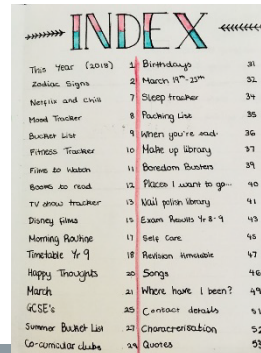 INDEX
This Year (2018) 1
Zodiac Signs 2
Netflix and Chill 7
Mood Tracker 8
Bucket List 9
Fitness Tracker 10
Films to Watch 11
Books to read 12
TV show tracker 13
Disney Films 15
Morning Routine 17
Timetable Yr 9 18
Happy Thoughts 20
March 21
GCSE's 25
Summer Bucket List 27
Co-curricular clubs 29
Birthdays 31
March 19th-25th 32
Sleep tracker 34
Packing List 35
When you're sad 36
Make up library 37
Boredom Busters 39
Places I want to go... 40
Nail polish library 41
Exam Results Yr 8-9 43
Self Care 45
Revision timetable 47
Songs 46
Where have I been? 49
Contact details 51
Characterisation 52
Quotes 53